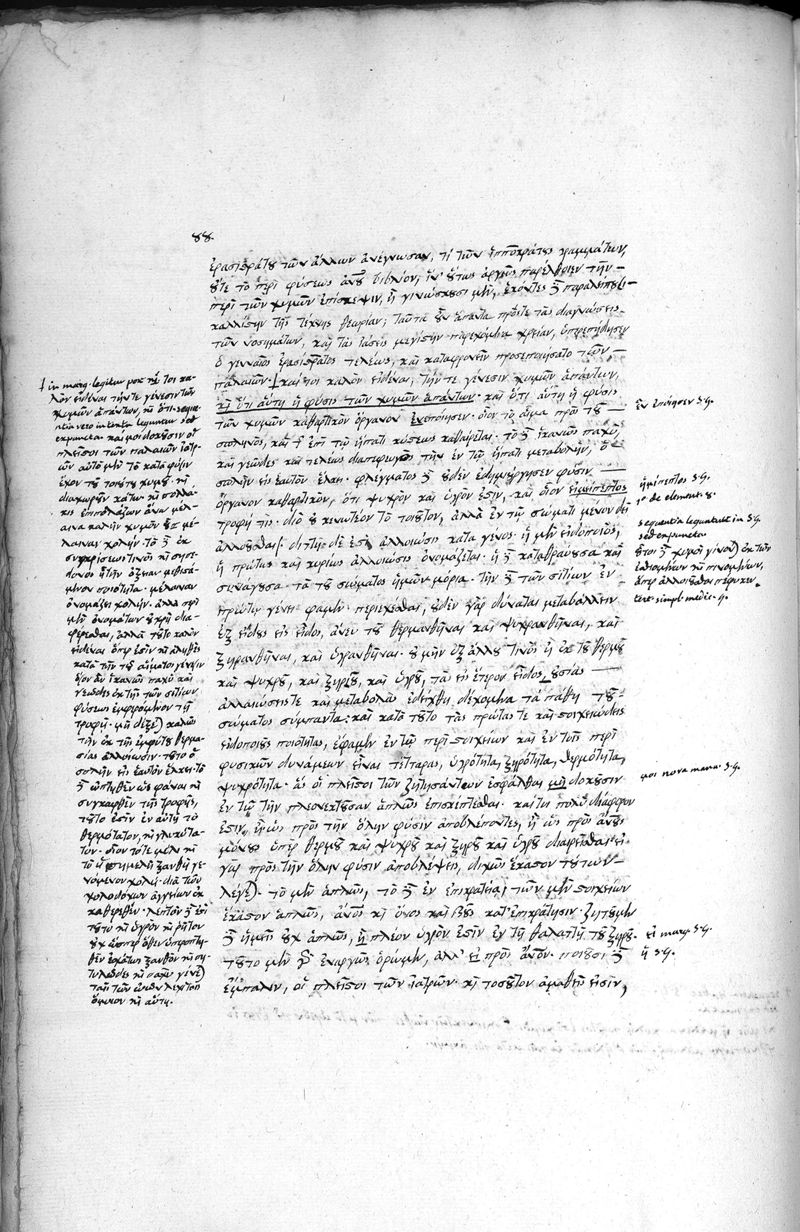 88.
ἐρασιστράτου τῶν ἄλλων ἀνέγνωσαν, τί τῶν ἱπποκράτους γραμμάτων,
οὔτε τὸ περὶ φύσεως ἀνου βιβλίον, ἵν' οὕτως ἀργῶς παρέλθοιεν τὴν
περὶ τῶν χυμῶν ἐπίσκεψιν, ἢ γινώσκουσι μὲν, ἑκόντες δὲ παραλείπουσι
καλλίστην τῆς τέχνης θεωρίαν; ταῦτα οὖν ἅπαντα πρός τε τὰς διαγνώσεις
τῶν νοσημάτων, καὶ τὰς ἰάσεις μεγίστην παρεχόμενα χρείαν, ὑπερεπήδησεν
ὁ γενναῖος ἐρασίστρατος τελέως, καὶ καταφρονεῖν προσεποιήσατο τῶν
παλαιῶν. καίτοι καλὸν εἰδέναι, τήν τε γένεσιν χυμῶν ἁπάντων,
καὶ ὅτι αὕτη ἡ φύσις τῶν χυμῶν ἁπάντων. καὶ ὅτι αὕτη ἡ φύσις
τῶν χυμῶν καθαρτικὸν ὄργανον ἐνοποίησεν. οἷον τὸ αἷμα πρὸς τοῦ
σπληνὸς, καὶ τῆς ἐπὶ τῷ ἥπατι κύστεως καθαίρεται. τὸ δὲ ἱκανῶς παχὺ,
καὶ γεῶδες καὶ τελέως διαπεφευγὸς τὴν ἐν τῷ ἥπατι μεταβολὴν, ὁ
σπλὴν εἰς ἑαυτὸν ἕλκει. φλέγματος δὲ οὐδὲν ἐδημιούργησεν φύσιν
ὄργανον καθαρτικὸν, ὅτι ψυχρὸν καὶ ὑγρόν ἐστιν, καὶ οἷον εἰμίπεπτος
τροφή τις. διὸ οὐ κενωτέον τὸ τοιοῦτον, ἀλλὰ ἐν τῷ σώματι μένον δεῖ
ἀλλοιοῦσθαι. διττὴ δέ ἐστι ἀλλοίωσις κατὰ γένος. ἡ μὲν εἰδοποιὸς,
ἢ πρώτως καὶ κυρίως ἀλλοίωσις ὀνομάζεται. ἡ δὲ καταθραύουσα καὶ
συνάγουσα τὰ τοῦ σώματος ἡμῶν μόρια. τὴν δὲ τῶν σιτίων ἐν
πρώτῳ γένει φαμὲν περιέχεσθαι, οὐδὲν γὰρ δύναται μεταβάλλειν
ἐξ εἴδους εἰς εἶδος, ἄνευ τοῦ θερμανθῆναι καὶ ψυχρανθῆναι, καὶ
ξηρανθῆναι, καὶ ὑγρανθῆναι. οὐ μὴν ἐξ ἄλλου τινὸς ἢ ἐκ τοῦ θερμοῦ
καὶ ψυχροῦ, καὶ ξηροῦ, καὶ ὑγροῦ, τὰς εἰς ἕτερον εἶδος οὐσίας
ἀλλοιώσεις τε καὶ μεταβολὰς ἐδείχθη δεχόμενα τὰ πάθη τοῦ
σώματος σύμπαντα. καὶ κατὰ τοῦτο τὰς πρώτας τε καὶ στοιχειώδεις
εἰδοποιοὺς ποιότητας, ἔφαμεν ἐν τῷ περὶ στοιχείων καὶ ἐν τοῖς περὶ
φυσικῶν δυνάμεων εἶναι τέτταρας, ὑγρότητα, ξηρότητα, θερμότητα,
ψυχρότητα. ἃς οἱ πλεῖστοι τῶν ζητησάντων ἐσφάλθαι μὴ δοκοῦσιν
ἐν τῷ τὴν πλεονεκτοῦσαν ἁπλῶς ἐπισκέπτεσθαι. καίτοι πολὺ διάφορον
ἐστιν, ἢ ὡς πρὸς τὴν ὅλην φύσιν ἀποβλέποντες, ἢ ὡς πρὸς ἄνους
μόνους ὑπὲρ θερμοῦ καὶ ψυχροῦ καὶ ξηροῦ καὶ ὑγροῦ διαιρεῖσθαι. εἰ
γὰρ πρὸς τὴν ὅλην φύσιν ἀποβλέψεις, διχῶς ἕκαστον τούτων
λέγεται. τὸ μὲν ἁπλῶς, τὸ δὲ ἐν ἐπικρατείᾳ, τῶν μὲν στοιχείων
ἕκαστον ἁπλῶς, ἄνος καὶ ὄνος καὶ βοῦς κατ' ἐπικράτησιν. ζητοῦμεν
δὲ ἡμεῖς οὐχ ἁπλῶς, ἢ πλέον ὑγρόν ἐστιν ἐν τῇ θαλάττῃ τοῦ ξηροῦ.
τοῦτο μὲν γὰρ ἐναργῶς ὁρῶμεν, ἀλλ' εἰ πρὸς ἄνον. ποιοῦσι δὲ
ἔμπαλιν, οἱ πλεῖστοι τῶν ἰατρῶν. καὶ τοσοῦτον ἀμαθεῖς εἰσιν,
† in marg. legitur
λὸν εἰδέναι τήν τε γένεσιν τῶν
χυμῶν ἁπάντων, καὶ ὅτι. sequentia
expuncta. καί μοι δοκοῦσιν οἱ
πλεῖστοι τῶν παλαιῶν ἰατρῶν
αὐτὸ μὲν τὸ κατὰ φύσιν
ἔχον τοῦ τοιούτου χυμοῦ καὶ
διαχωρεῖν κάτω καὶ πολλάκις
ἐπιπολάζων ἄνω μέλαινα
καλεῖν χυμὸν οὐ μέλαιναν
χολήν. τὸ δὲ ἐκ
συγκαύσεως τινὸς καὶ σηπεδόνος
εἰς τὴν ὀξεῖαν μεθισταμένων
ποιότητα. μέλαιναν
ὀνομάζει χολήν. ἀλλὰ περὶ
μὲν ὀνομάτων οὐ χρὴ διαφέρεσθαι,
ἀλλὰ τοῦτο καλὸν
εἰδέναι ὅπερ ἐστὶν καὶ ἀληθὲς
κατὰ τὴν τοῦ αἵματος γένεσιν
ὅσον ἂν ἱκανῶς παχὺ καὶ
γεῶδες ἐκ τῆς τῶν σιτίων
φύσεως ἐμφερόμενον τῇ
τροφῇ. μὴ δέξηται καλῶς
τὴν ἐκ τῆς ἐμφύτου θερμασίας
ἀλλοίωσιν. τοῦτο ὁ
σπλὴν εἰς ἑαυτὸν ἕλκει. τὸ
δὲ ὀπτηθὲν ὡς φάναι καὶ
συγκαυθὲν τῆς τροφῆς,
τοῦτο ἐστὶν ἐν αὐτῇ τὸ
θερμότατον, καὶ γλυκύτατον.
οἷον τό τε μέλι καὶ
τὸ ἡ πιμελὴ ξανθὴ γενόμενον
χολή. διὰ τῶν
χοληδόχων ἀγγείων ἐκκαθαρθέν.
λεπτὸν δὲ ἐστὶ
τοῦτο καὶ ὑγρὸν καὶ ῥυτὸν
οὐχ ὥσπερ
ὅμοιον καὶ αὐτῇ.
ἐν ἐποίησεν s. g.
ἡμίπεπτος s. g.
1° de element. 8.
sequentia leguntur in s g
sed expuncta
ἤτοι δὲ χυμοὶ γίνονται ἐκ τῶν
ἐσθιομένων καὶ πινομένων,
ἅπερ ἀλλοιοῦσθαι πέφυκεν.
μοι nova manu. s. g.
εἰ marg. s. g.
ἢ s. g.